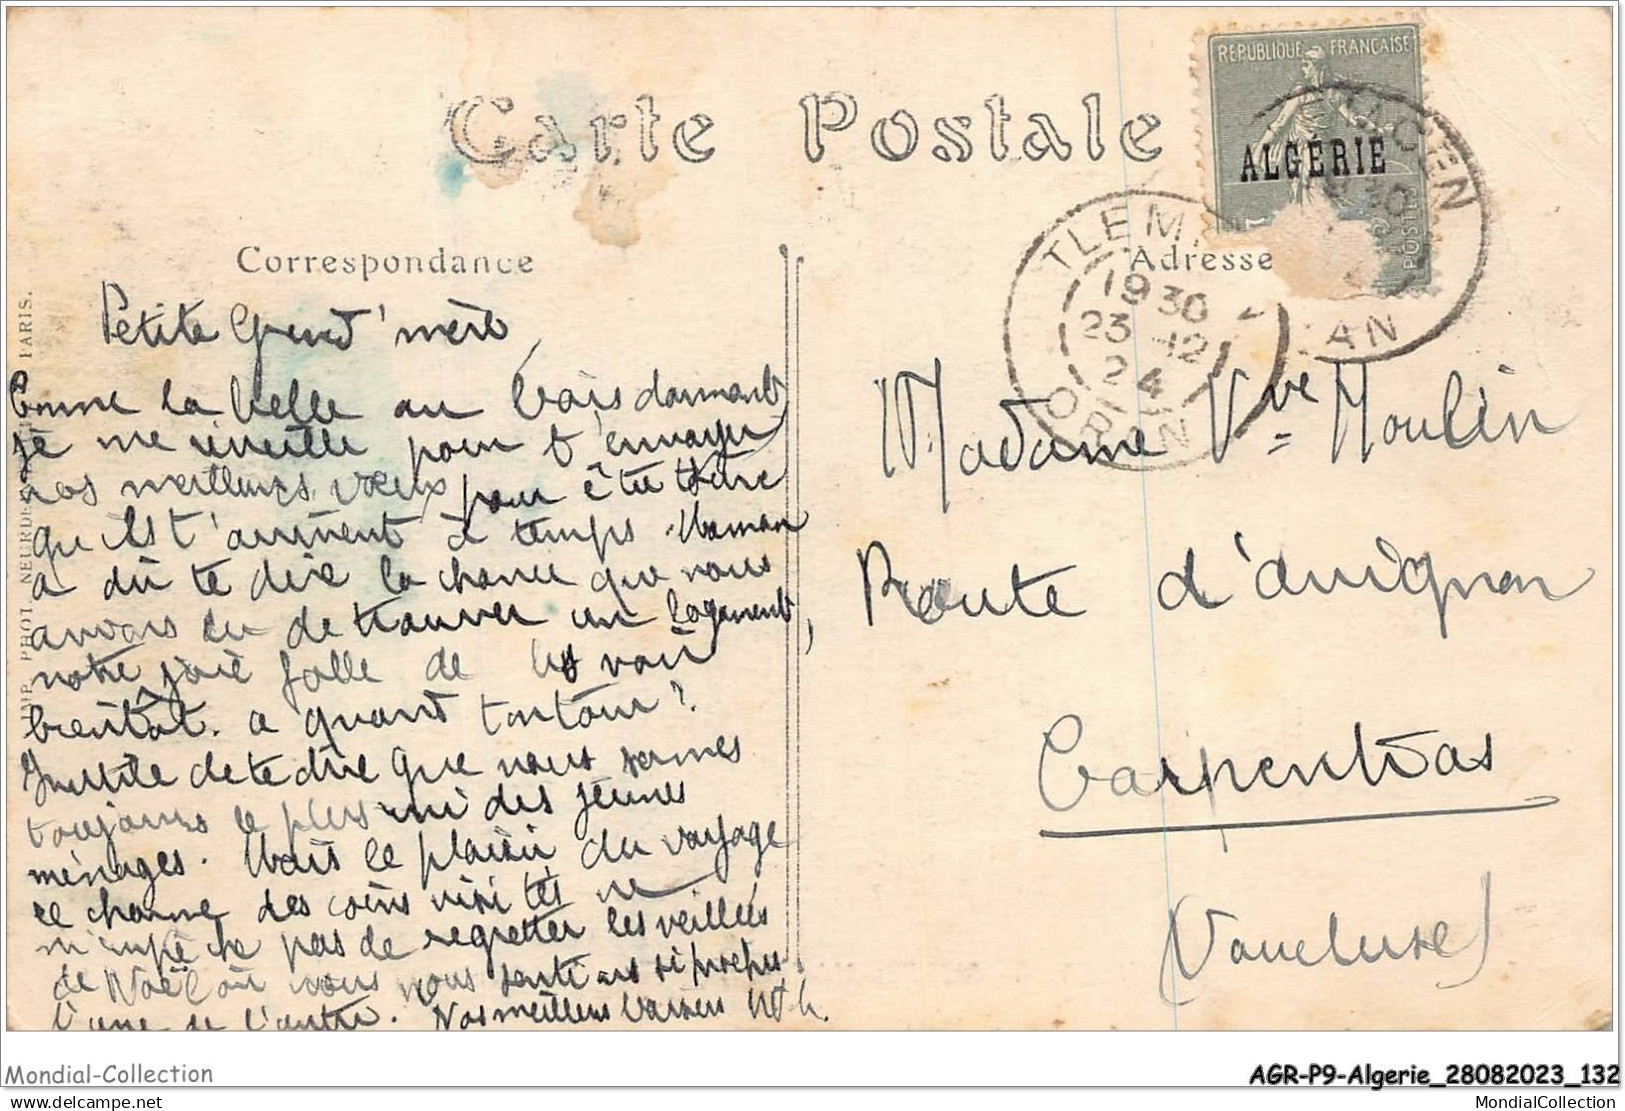 Carte Postale
REPUBLIQUE FRANÇAISE
ALGÉRIE
POSTES
TLEMCEN
TLEM
19 30
23 -12
24
ORAN
Correspondance
Adresse
Petite Grand'mère,
Comme la belle au bois dormant
je me réveille pour t'envoyer
nos meilleurs voeux pour être sûre
qu'ils t'arrivent à temps. Maman
a dû te dire la chance que nous
avons eu de trouver un logement,
notre joie folle de les voir
bientôt. a quand ton tour?
Inutile de te dire que nous sommes
toujours le plus uni des jeunes
ménages. Mais le plaisir du voyage
le charme des coins visités ne
m'empêche pas de regretter les veillées
de Noël où nous nous sentions si proches
l'une de l'autre. Nos meilleurs baisers
Madame Vve Moulin
Route d'Avignon
Carpentras
(Vaucluse)
IMP. PHOT. NEURDEIN PARIS.
Mondial-Collection
AGR-P9-Algerie_28082023_132
delcampe.net
MondialCollection